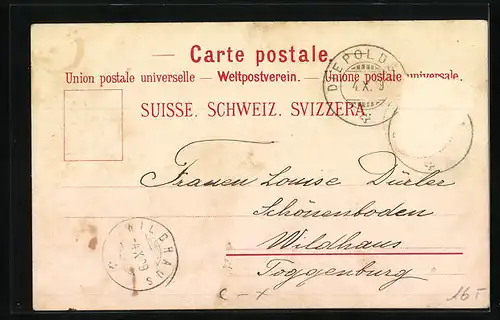 Carte postale.
Union postale universelle. — Weltpostverein. — Unione postale universale.
SUISSE. SCHWEIZ. SVIZZERA.
4.X.9
Frauen Louise Dürler
Schönenboden
Wildhaus
Toggenburg
WILDHAUS
-4.X.9
C - x